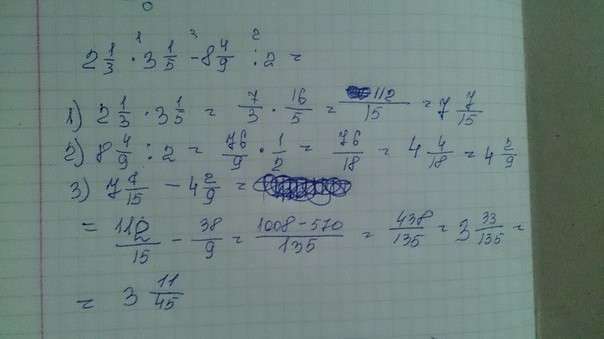 1 3 2
2 1/3 · 3 1/5 - 8 4/9 : 2 =
1) 2 1/3 · 3 1/5 = 7/3 · 16/5 = 112/15 = 7 7/15
2) 8 4/9 : 2 = 76/9 · 1/2 = 76/18 = 4 4/18 = 4 2/9
3) 7 7/15 - 4 2/9 =
= 112/15 - 38/9 = 1008-570/135 = 438/135 = 3 33/135 =
= 3 11/45